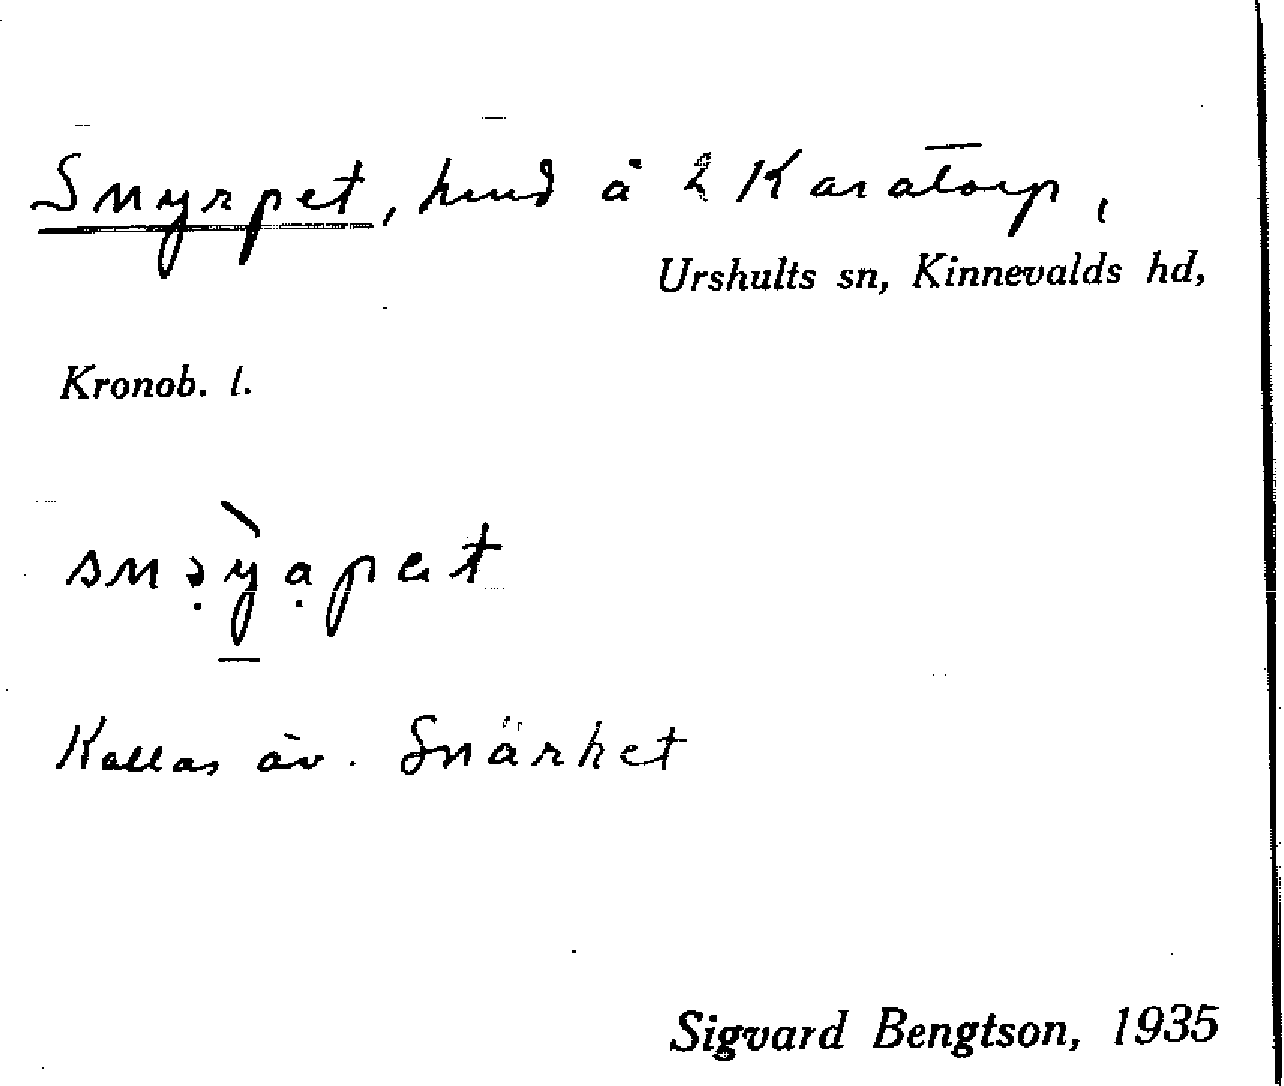 Snyrpet, hmd å 2 Karatorp,
Urshults sn, Kinnevalds hd,
Kronob. l.
Kallas äv. Snärket
Sigvard Bengtson, 1935